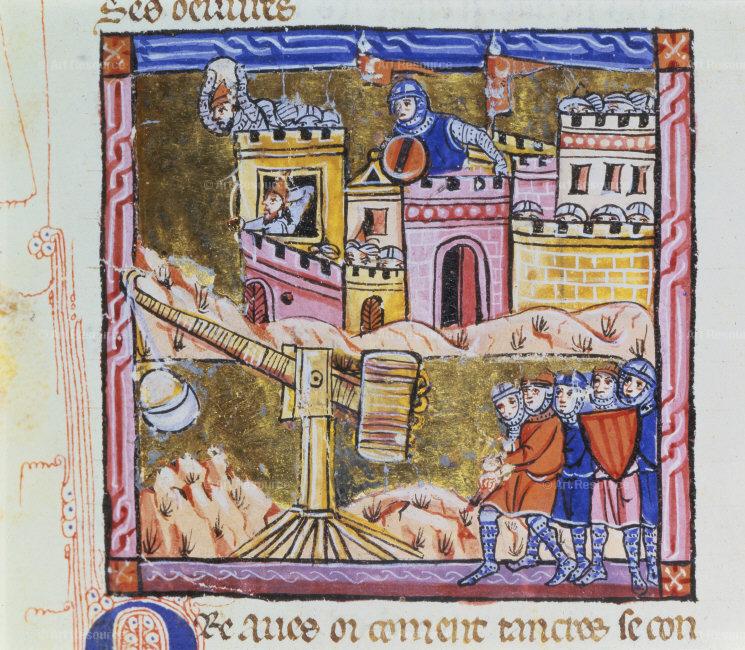 Ses oeuures
Art Resource
Re Aues oi coment tancres se con